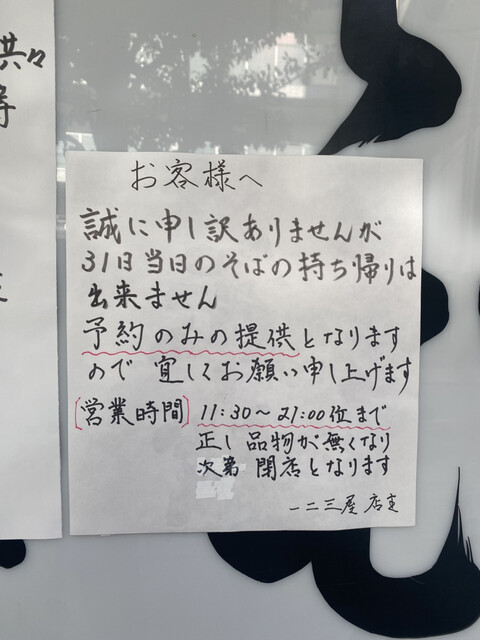 お客様へ
誠に申し訳ありませんが
31日当日のそばの持ち帰りは
出来ません
予約のみの提供となります
ので 宜しくお願い申し上げます
[営業時間] 11:30～21:00位まで
正し 品物が無くなり
次第 閉店となります
一二三屋 店主
共々